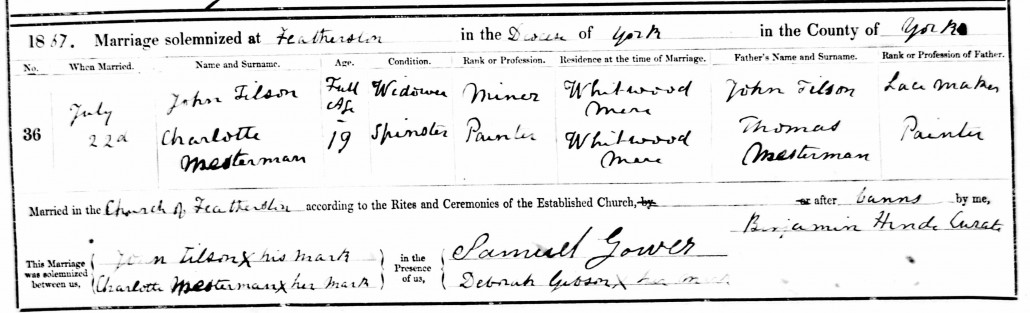 1867. Marriage solemnized at Featherston in the Diocese of York in the County of York
No. When Married. Name and Surname. Age. Condition. Rank or Profession. Residence at the time of Marriage. Father's Name and Surname. Rank or Profession of Father.
36 July 22d John Tilson Full Age Widower Miner Whitwood Mere John Tilson Lace Maker
Charlotte Mesterman 19 Spinster Painter Whitwood Mere Thomas Mesterman Painter
Married in the Church of Featherston according to the Rites and Ceremonies of the Established Church, by or after banns by me,
Benjamin Hinde Curate
This Marriage was solemnized between us, John Tilson X his mark in the Presence of us, Samuell Gower
Charlotte Mesterman X her mark Deborah Gibson X her mark